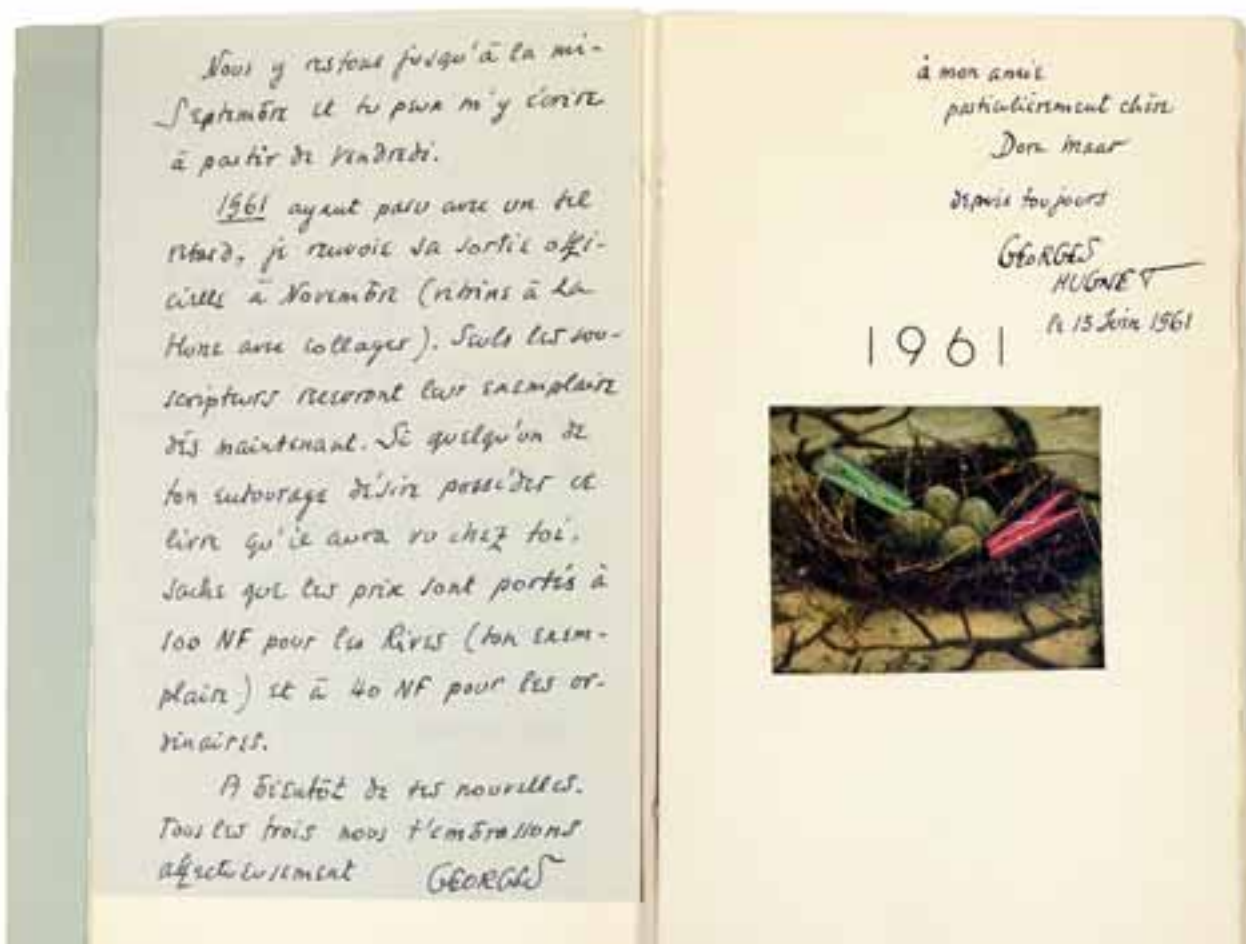 Nous y restons jusqu'à la mi-
Septembre et tu peux m'y écrire
à partir de Vendredi.
1961 ayant paru avec un tel
retard, je renvoie sa sortie offi-
cielle à Novembre (vitrine à La
Hune avec collages). Seuls les sou-
scripteurs recevront leur exemplaire
dès maintenant. Si quelqu'un de
ton entourage désire posséder ce
livre qu'il aura vu chez toi,
sache que les prix sont portés à
100 NF pour les Rives (ton exem-
plaire) et à 40 NF pour les or-
dinaires.
A bientôt de tes nouvelles.
Tous les trois nous t'embrassons
affectueusement GEORGES
à mon amie
particulièrement chère
Dora Maar
depuis toujours
GEORGES
HUGNET
le 13 Juin 1961
1961